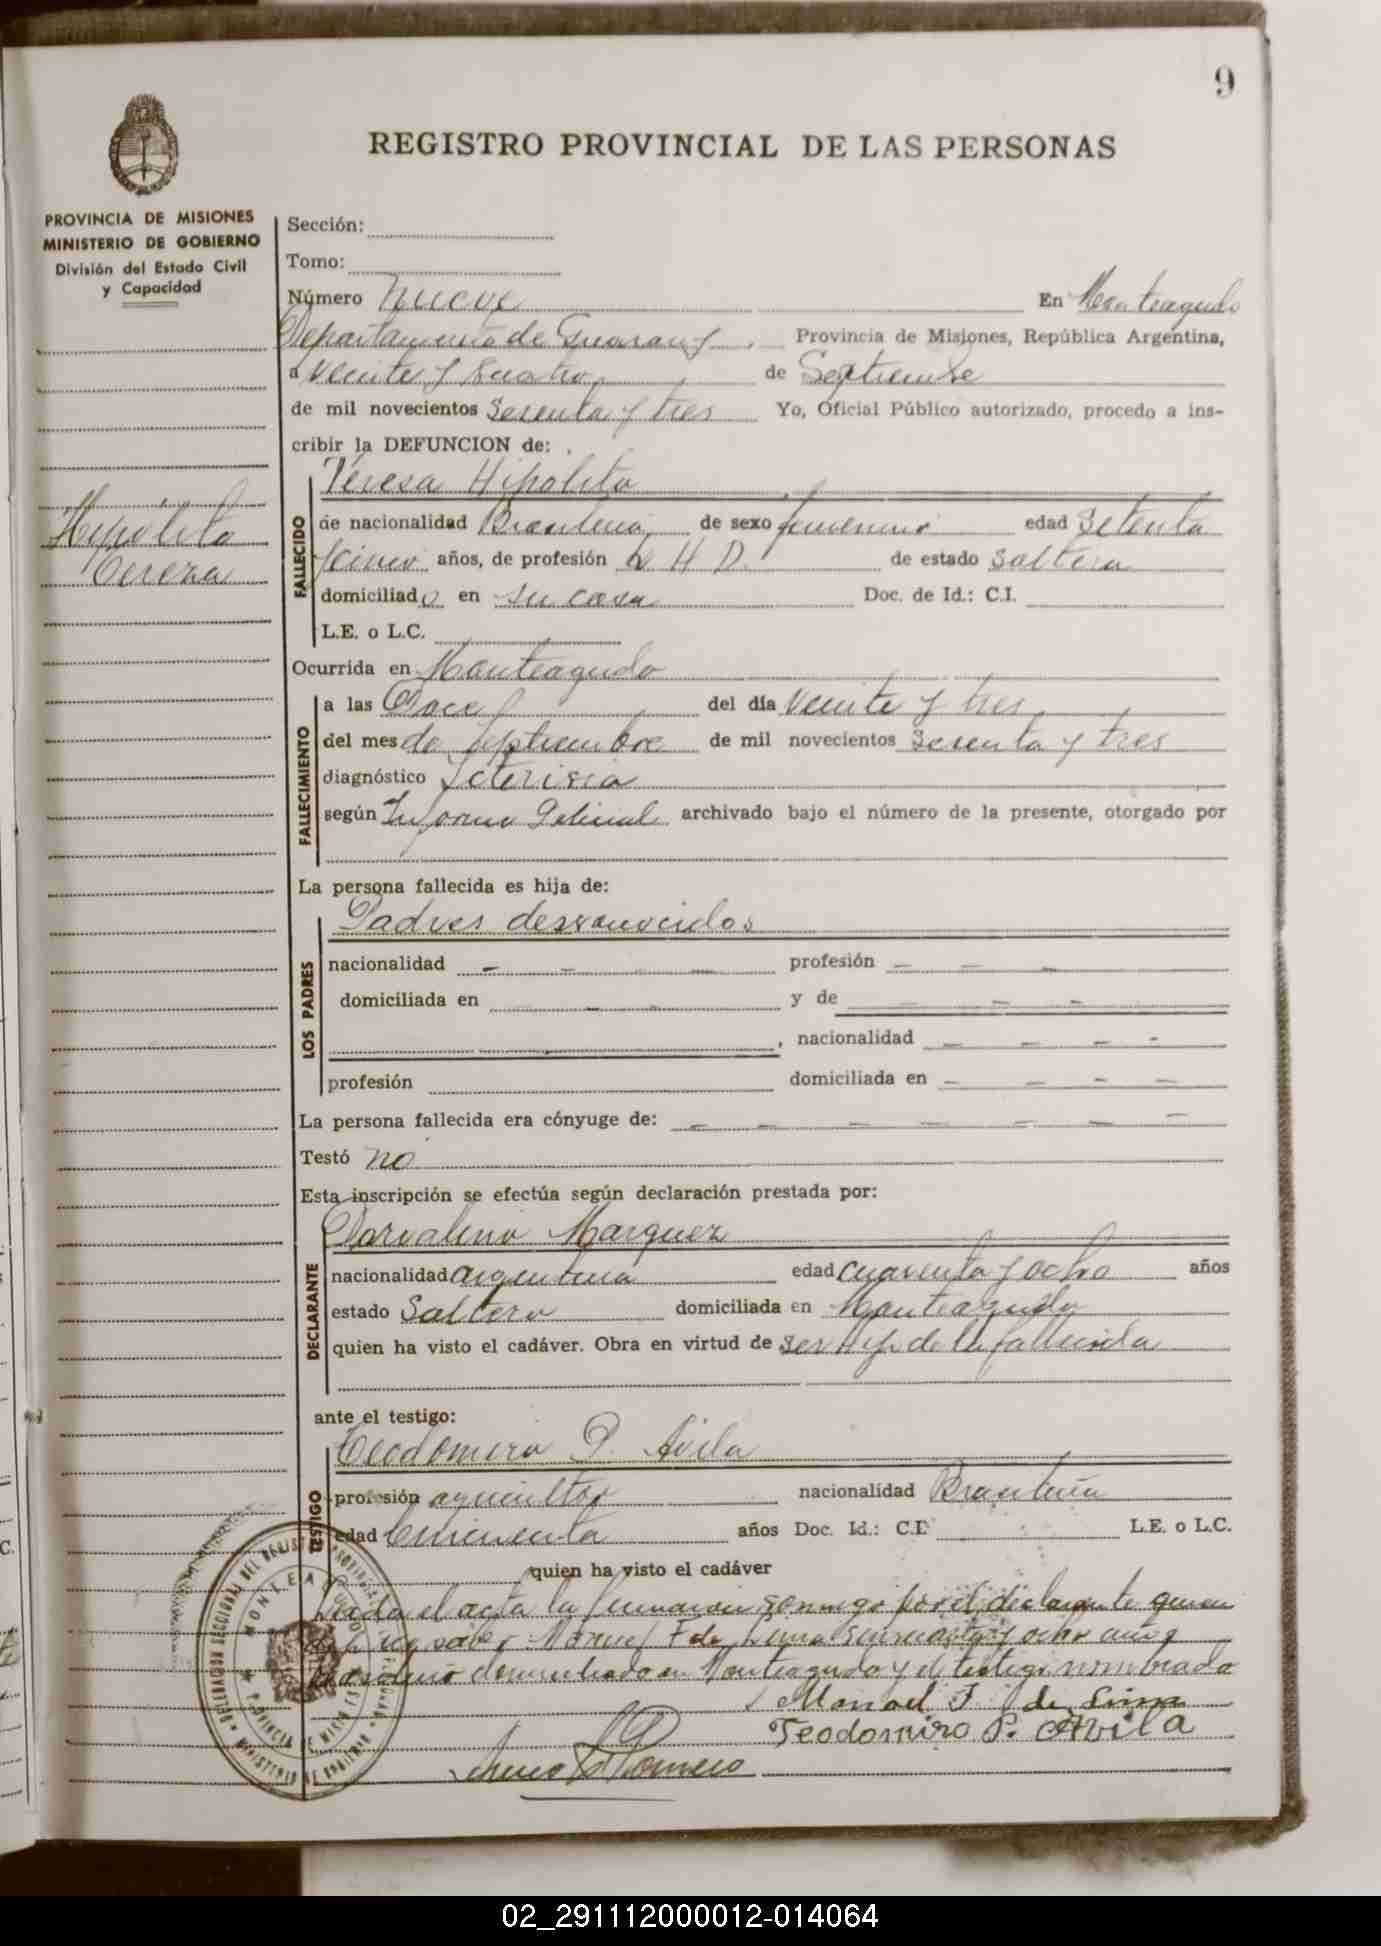 9
REGISTRO PROVINCIAL DE LAS PERSONAS
PROVINCIA DE MISIONES
MINISTERIO DE GOBIERNO
División del Estado Civil
y Capacidad
Hipólita
Tereza
Sección:
Tomo:
Número nueve En Monteagudo
Departamento de Guaraní Provincia de Misiones, República Argentina,
a veinte y cuatro de Septiembre
de mil novecientos sesenta y tres Yo, Oficial Público autorizado, procedo a ins-
cribir la DEFUNCION de:
Teresa Hipolita
FALLECIDO
de nacionalidad Brasileña de sexo femenino edad setenta
y cinco años, de profesión Q H D. de estado Soltera
domiciliado en su casa Doc. de Id.: C.I.
L.E. o L.C.
Ocurrida en Monteagudo
FALLECIMIENTO
a las Doce del día veinte y tres
del mes de septiembre de mil novecientos sesenta y tres
diagnóstico Ictericia
según Informe Policial archivado bajo el número de la presente, otorgado por
La persona fallecida es hija de:
LOS PADRES
Padres desconocidos
nacionalidad - - - profesión - - -
domiciliada en - - - y de - - -
, nacionalidad - - - -
profesión domiciliada en - - - -
La persona fallecida era cónyuge de: - - - - - - -
Testó no
Esta inscripción se efectúa según declaración prestada por:
DECLARANTE
Dorvalino Marquez
nacionalidad argentina edad cuarenta y ocho años
estado Soltero domiciliada en Monteagudo
quien ha visto el cadáver. Obra en virtud de ser Hijo de la fallecida
ante el testigo:
TESTIGO
Teodomiro P. Avila
profesión agricultor nacionalidad Brasileña
edad Cincuenta años Doc. Id.: C.I. L.E. o L.C.
quien ha visto el cadáver
Leida el acta la firmaron conmigo por el declarante quien
no saber Manuel F de Lima cincuenta y ocho años
brasileño domiciliado en Monteagudo y el testigo nombrado
Manoel F de Lima
Teodomiro P. Avila
Romero
02_291112000012-014064